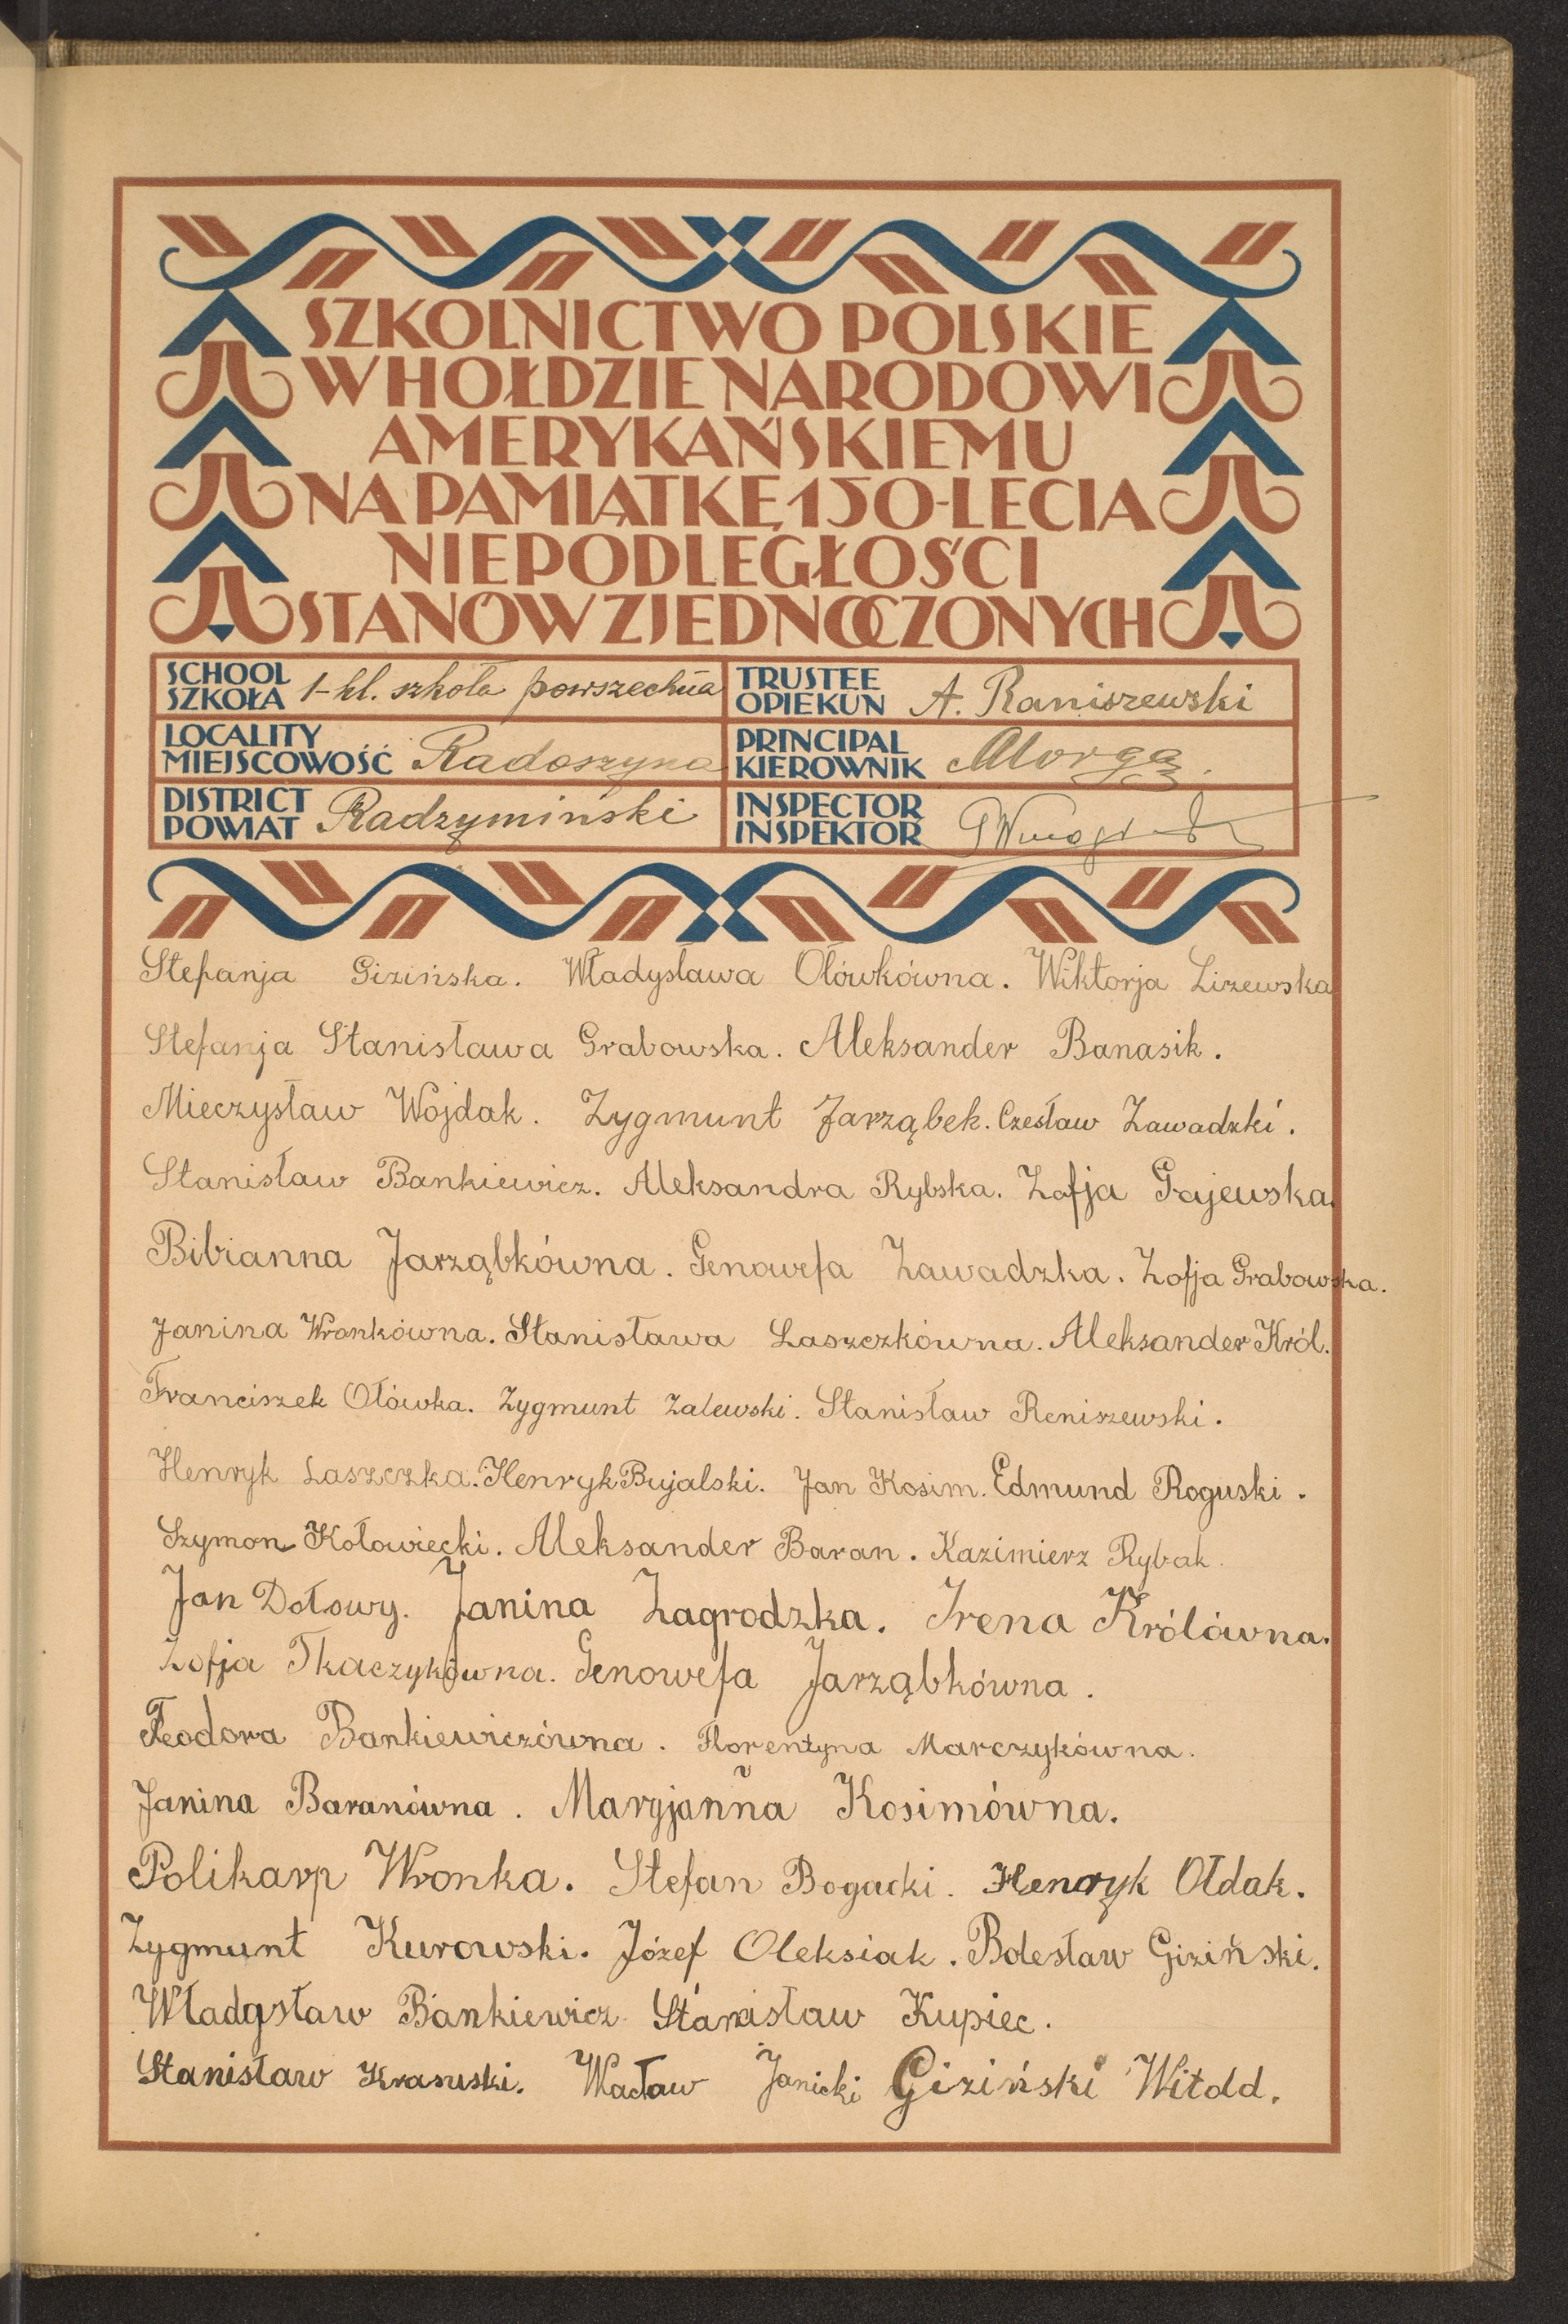 SZKOLNICTWO POLSKIE
W HOŁDZIE NARODOWI
AMERYKAŃSKIEMU
NA PAMIĄTKĘ 150-LECIA
NIEPODLEGŁOŚCI
STANÓW ZJEDNOCZONYCH
SCHOOL
SZKOŁA 1-kl. szkoła powszechna
TRUSTEE
OPIEKUN A. Raniszewski
LOCALITY
MIEJSCOWOŚĆ Radoszyna
PRINCIPAL
KIEROWNIK
DISTRICT
POWIAT Radzymiński
INSPECTOR
INSPEKTOR
Stefanja Gizińska. Władysława Ołówkówna. Wiktorja Lizewska
Stefanja Stanisława Grabowska. Aleksander Banasik.
Mieczysław Wojdak. Zygmunt Jarząbek. Czesław Zawadzki.
Stanisław Bankiewicz. Aleksandra Rybska. Zofja Gajewska.
Bibianna Jarząbkówna. Genowefa Zawadzka. Zofja Grabowska.
Janina Wronkówna. Stanisława Laszczkówna. Aleksander Król.
Franciszek Ołówka. Zygmunt Zalewski. Stanisław Reniszewski.
Henryk Laszczka. Henryk Bujalski. Jan Kosim. Edmund Roguski.
Szymon Kołowiecki. Aleksander Baran. Kazimierz Rybak.
Jan Dołowy. Janina Zagrodzka. Irena Królówna.
Zofja Tkaczykówna. Genowefa Jarząbkówna.
Teodora Bankiewiczówna. Florentyna Marczykówna.
Janina Baranówna. Maryjanna Kosimówna.
Polikarp Wronka. Stefan Bogacki. Henryk Ołdak.
Zygmunt Kurowski. Józef Oleksiak. Bolesław Giziński.
Władysław Bankiewicz Stanisław Kupiec.
Stanisław Krasuski. Wacław Janicki Giziński Witold.